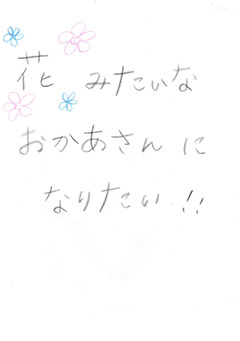 花 みたいな
おかあさん に
なりたい!!